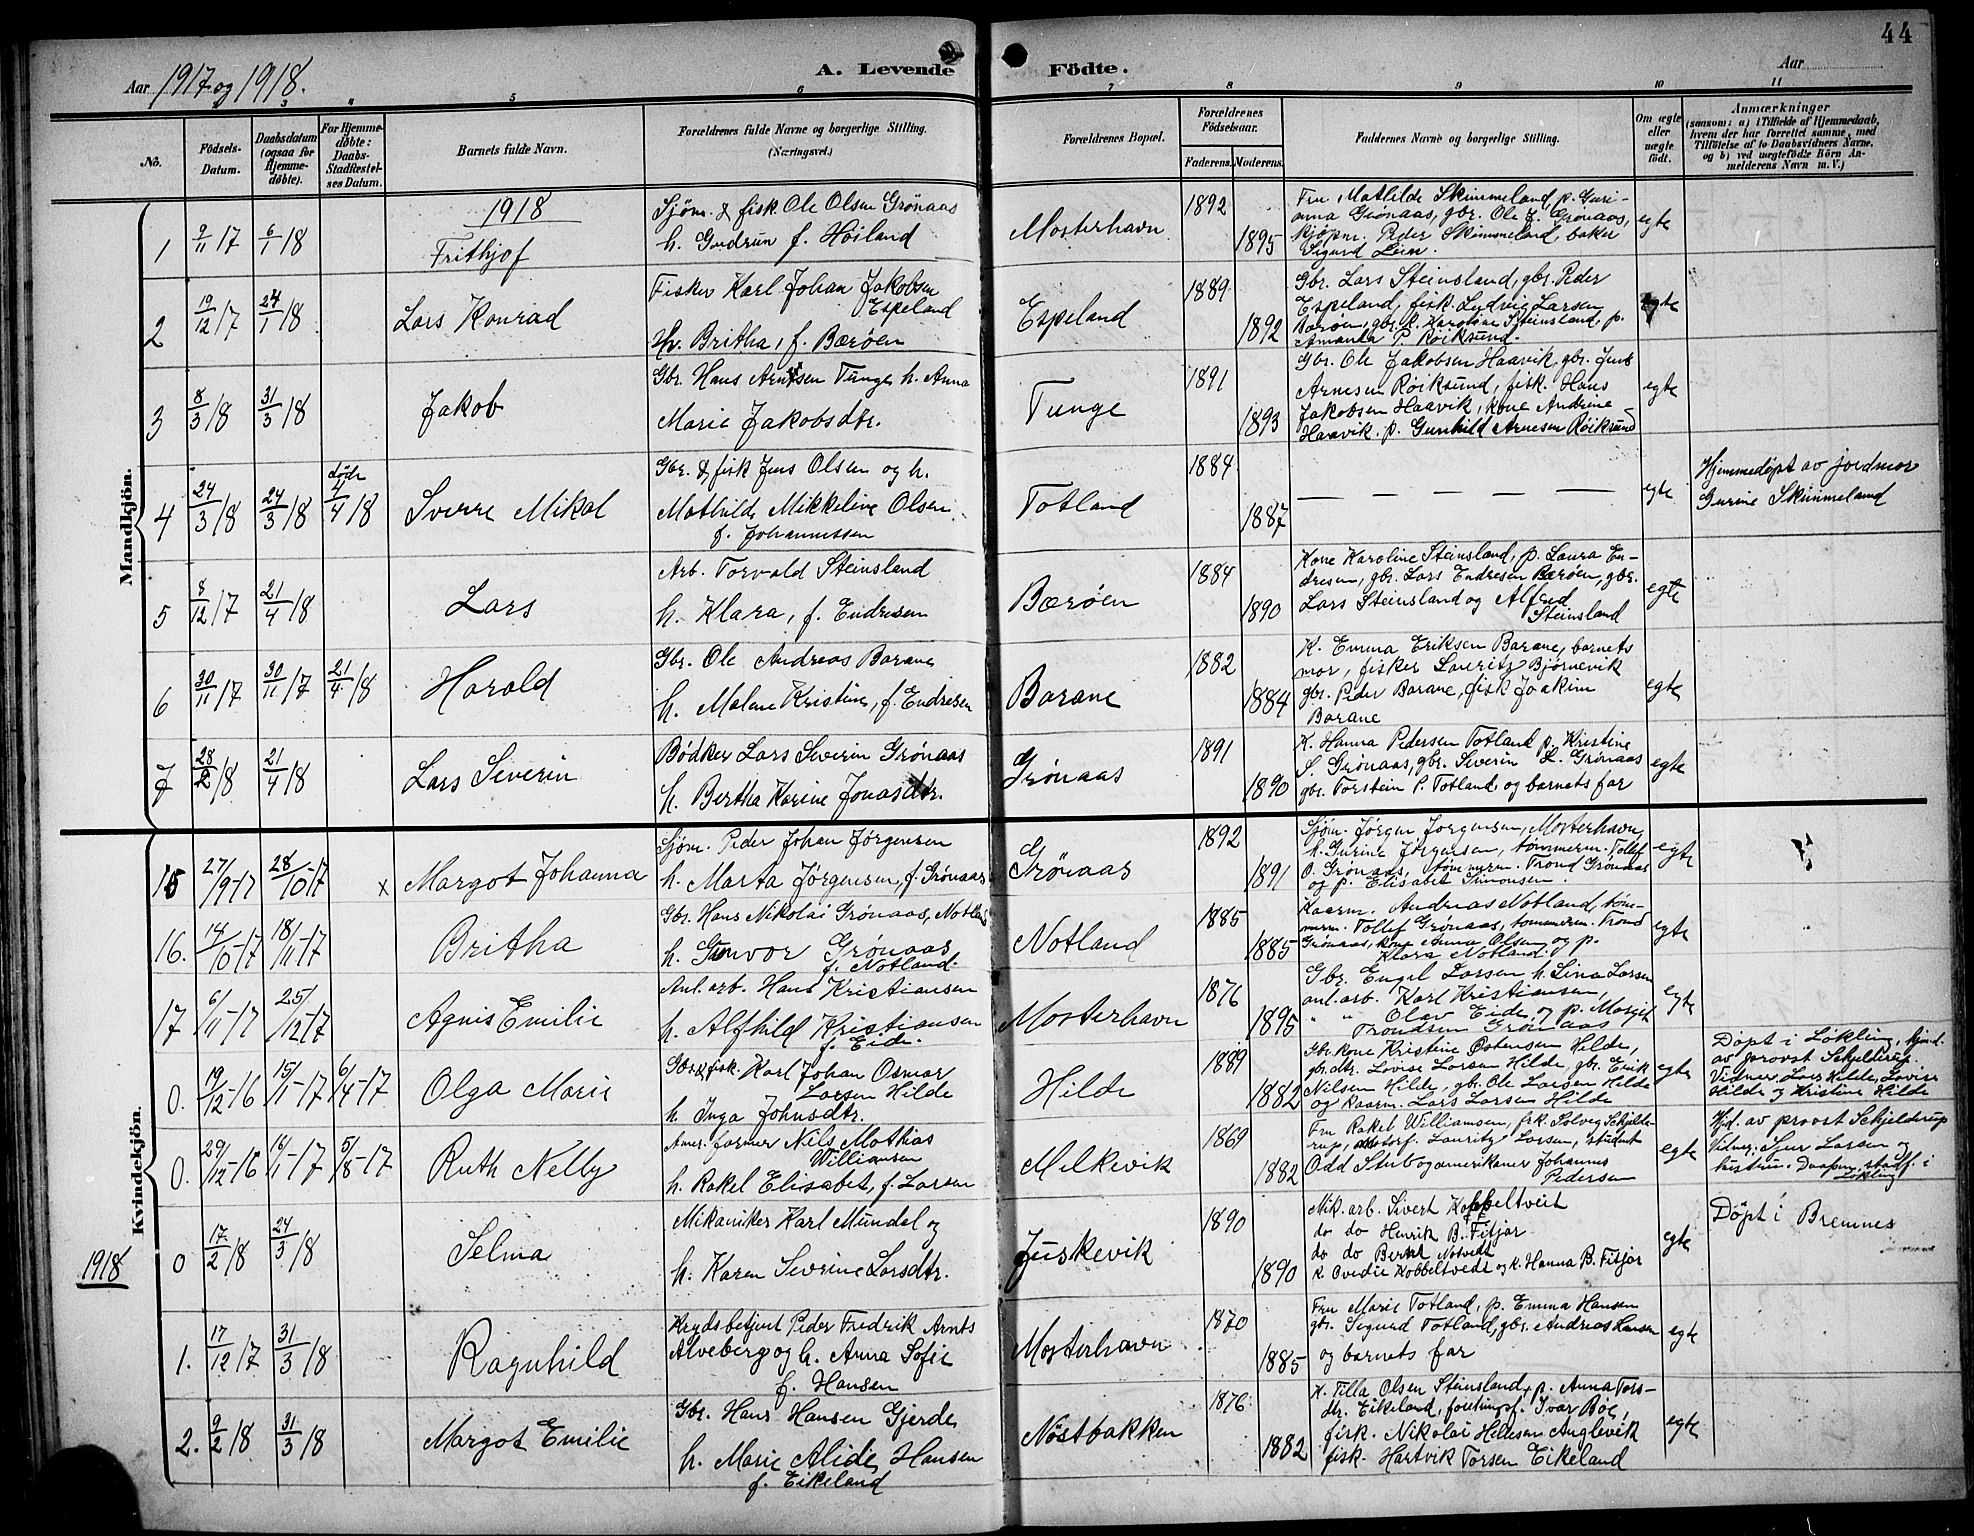 44
Aar 1917 og 1918.
A. Levende Födte.
Aar
3 4 5 6 7 8 9 10 11
No.
Födsels-Datum.
Daabsdatum (ogsaa for Hjemmedøbte).
For Hjemmedøbte: Daabs-Stadfestelses Datum.
Barnets fulde Navn.
Forældrenes fulde Navne og borgerlige Stilling.
(Næringsvei.)
Forældrenes Bopæl.
Forældrenes Födselsaar.
Faderens. Moderens.
Faddernes Navne og borgerlige Stilling.
Om ægte eller uægte født.
Anmærkninger
(saasom: a) i Tilfælde af Hjemmedaab, hvem der har forrettet samme, med Tilföielse af to Daabsvidners Navne, og b) ved uægtefödte Börn Anmelderens Navn m. V.)
Mandkjön.
1918
1 9/11 17 6/1 18 Frithjof
Sjöm. & fisk. Ole Olsen Grönaas
h. Gudrun f. Høiland
Mosterhavn 1892 1895
Fru Mathilde Skimmeland, p. Guri-
anna Grønaas, gbr. Ole J. Grønaas,
kjøpm. Peder Skimmeland, baker
Sigurd Leim.
egte
2 19/12 17 24/1 18 Lars Konrad
Fisker Karl Johan Jakobsen
Espeland
Hv. Britha, f. Bærøen
Espeland 1889 1892
Gbr. Lars Steinsland, gbr. Peder
Espeland, fisk. Lydvig Larsen
Bærøen, gbr. k. Karoline Steinsland, p.
Amanda P. Røiksund.
egte
3 8/3 18 31/3 18 Jakob
Gbr. Hans Arntsen Tunge h. Anna
Marie Jakobsdtr.
Tunge 1891 1893
Gbr. Ole Jakobsen Haavik, gbr. Jens
Arnesen Røiksund, fisk. Hans
Jakobsen Haavik, kone Andrine
Haavik. p. Gunhild Arnesen Røiksund
egte
4 24/3 18 24/3 18 døde 4/4 18 Sverre Mikal
Gbr. & fisk Jens Olsen og h.
Mathilde Mikkeline Olsen
f. Johannessen
Totland 1884 1887
— — — — — —
egte
Hjemmedöpt av jordmor
Gurine Skimmeland
5 8/12 17 21/4 18 Lars
Arb. Torvald Steinsland
h. Klara, f. Endresen
Bærøen 1884 1890
Kone Karoline Steinsland, p. Laura En-
dresen, gbr. Lars Endresen Bærøen, gbr.
Lars Steinsland og Alfred
Steinsland
egte
6 30/11 17 30/11 17 21/4 18 Harald
Gbr. Ole Andreas Barane
h. Malene Kristine, f. Endresen
Barane 1882 1884
K. Emma Eriksen Barane, barnets
mor, fisker Lauritz Bjørnevik
gbr. Peder Barane, fisk Joakim
Barane
egte
7 28/2 18 21/4 18 Lars Severin
Bødker Lars Severin Grønaas
h. Bertha Karine Jonasdtr.
Grønaas 1891 1890
K. Hanna Pedersen Totland p. Kristine
S. Grønaas, gbr. Severin L. Grønaas
gbr. Torstein P. Totland, og barnets far
egte
Kvindekjön.
15 27/9-17 28/10-17 x Margot Johanna
Sjöm. Peder Johan Jørgensen
h. Marta Jørgensen, f. Grønaas
Grønaas 1892 1891
Sjøm. Jørgen Jørgensen, Mosterhavn,
h. Gurine Jørgensen, tømmerm. Tollef
O. Grønaas, tømmerm. Trond Grønaas
og p. Elisabet Simonsen.
egte
16. 14/10-17 18/11-17 Britha
Gbr. Hans Nikolai Grønaas, Notland
h. Gunvor Grønaas
f. Notland.
Notland 1885 1885
Kaarm. Andreas Notland, tøm-
merm. Tollef Grønaas, tømmerm. Trond
Grønaas, kone Anna Olsen og p.
Klara Notland.
egte
17 6/11-17 25/12-17 Agnes Emilie
Anl. arb. Hans Kristiansen
h. Alfhild Kristiansen
f. Eide.
Mosterhavn 1876 1895
Gbr. Engel Larsen h. Lina Larsen
anl. arb. Karl Kristiansen,
" " Olav Eide, og p. Margit
Trondsen Grønaas
egte
0. 19/12-16 15/1-17 6/4-17 Olga Marie
Gbr. & fisk. Karl Johan Osmar
Larsen Hilde
h. Inga Johnsdtr.
Hilde 1889 1882
Gbr. kone Kristine Østensen Hilde,
gbr. dtr. Lovise Larsen Hilde, gbr. Erik
Nilsen Hilde, gbr. Ole Larsen Hilde
og kaarm. Lars Larsen Hilde
egte
Döpt i Lökling, hjemd.
av provst Schjeldrup.
Vidner Lars Hilde, Lovise
Hilde og Kristine Hilde
0. 29/12-16 16/1-17 5/8-17 Ruth Nelly
Amer. farmer Nils Mathias
Williamsen
h. Rakel Elisabet, f. Larsen
Melkevik 1869 1882
Fru Rakel Williamsen, frk. Solveig Schjelde-
rup, Lauritz Larsen, student
Odd Stub og amerikaner Johannes
Pedersen
egte
Hjd. av provst Schjeldrup
Vidner, Sjur Larsen og
hustru. Daapen stadf. i
Lökling
1918
0 17/2 18 24/3 18 Selma
Mekaniker Karl Mundal og
h. Karen Severine Larsdtr.
Juskevik 1890 1890
Mek. arb. Sivert Kobbeltveit
do do Henrik B. Fitjar
do do Bernt Notvedt
k. Ovedie Kobbeltvedt og k. Hanna B. Fitjar
egte
Döpt i Bremnes
1. 17/12 17 31/3 18 Ragnhild
Krydsbetjent Peder Fredrik Arnts
Alveberg og h. Anna Sofie
f. Hansen
Mosterhavn 1870 1885
Fru Marie Totland, p. Emma Hansen
gbr. Sigurd Totland, gbr. Andreas Hansen
og barnets far
egte
2. 9/2 18 31/3 18 Margot Emilie
Gbr. Hans Hansen Gjerde
h. Marie Alide Hansen
f. Eikeland
Nøstbakken 1876 1882
K. Tilla Olsen Steinsland, p. Anna Tors-
dtr. Eikeland, forretningsf. Ivar Røe,
fisk. Nikolai Hildesen Anglevik
fisk. Hartvik Torsen Eikeland
egte